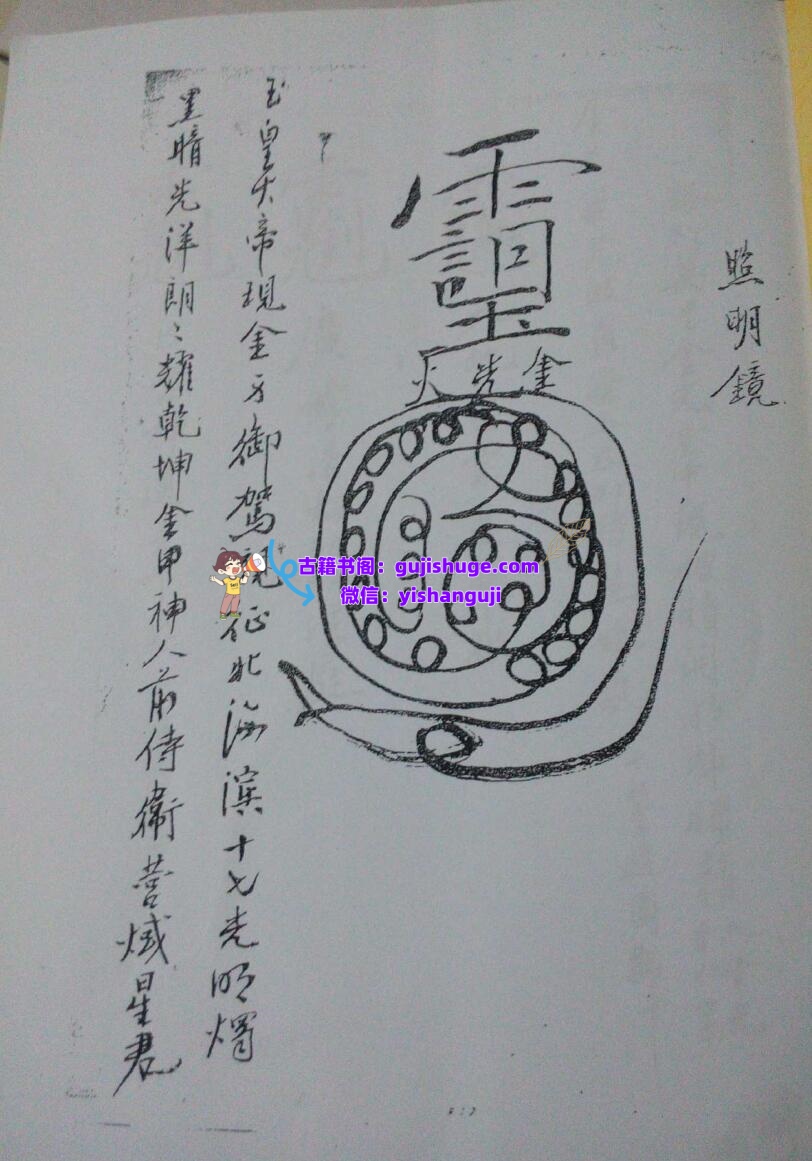 照明鏡
靈
金光火
玉皇大帝現金身御駕親征北海濱十七光明燭
黑暗光洋朗〻耀乾坤金甲神人前侍衛營熾星君
古籍书阁：gujishuge.com
微信：yishanguji